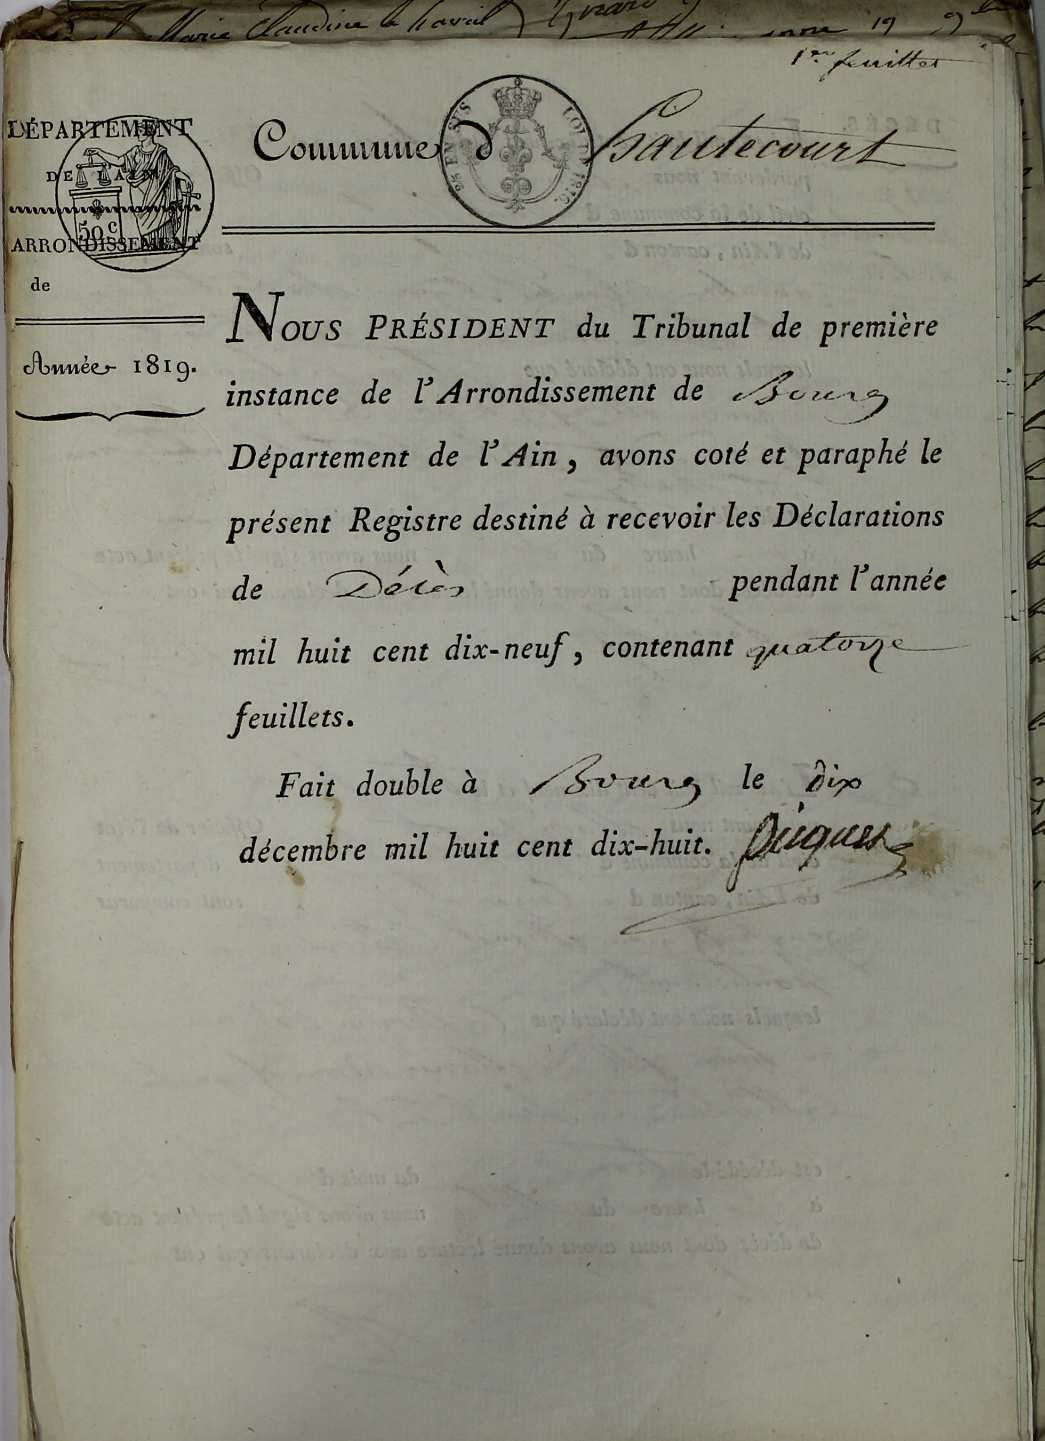 Marie Claudine
19
1er feuillet
DÉPARTEMENT
DE L'AIN
50 c
ARRONDISSEMENT
de
Année 1819.
Commune d'hautecourt
NOUS PRÉSIDENT du Tribunal de première
instance de l'Arrondissement de Bourg
Département de l'Ain, avons coté et paraphé le
présent Registre destiné à recevoir les Déclarations
de Décès pendant l'année
mil huit cent dix-neuf, contenant quatorze
feuillets.
Fait double à Bourg le dix
décembre mil huit cent dix-huit.